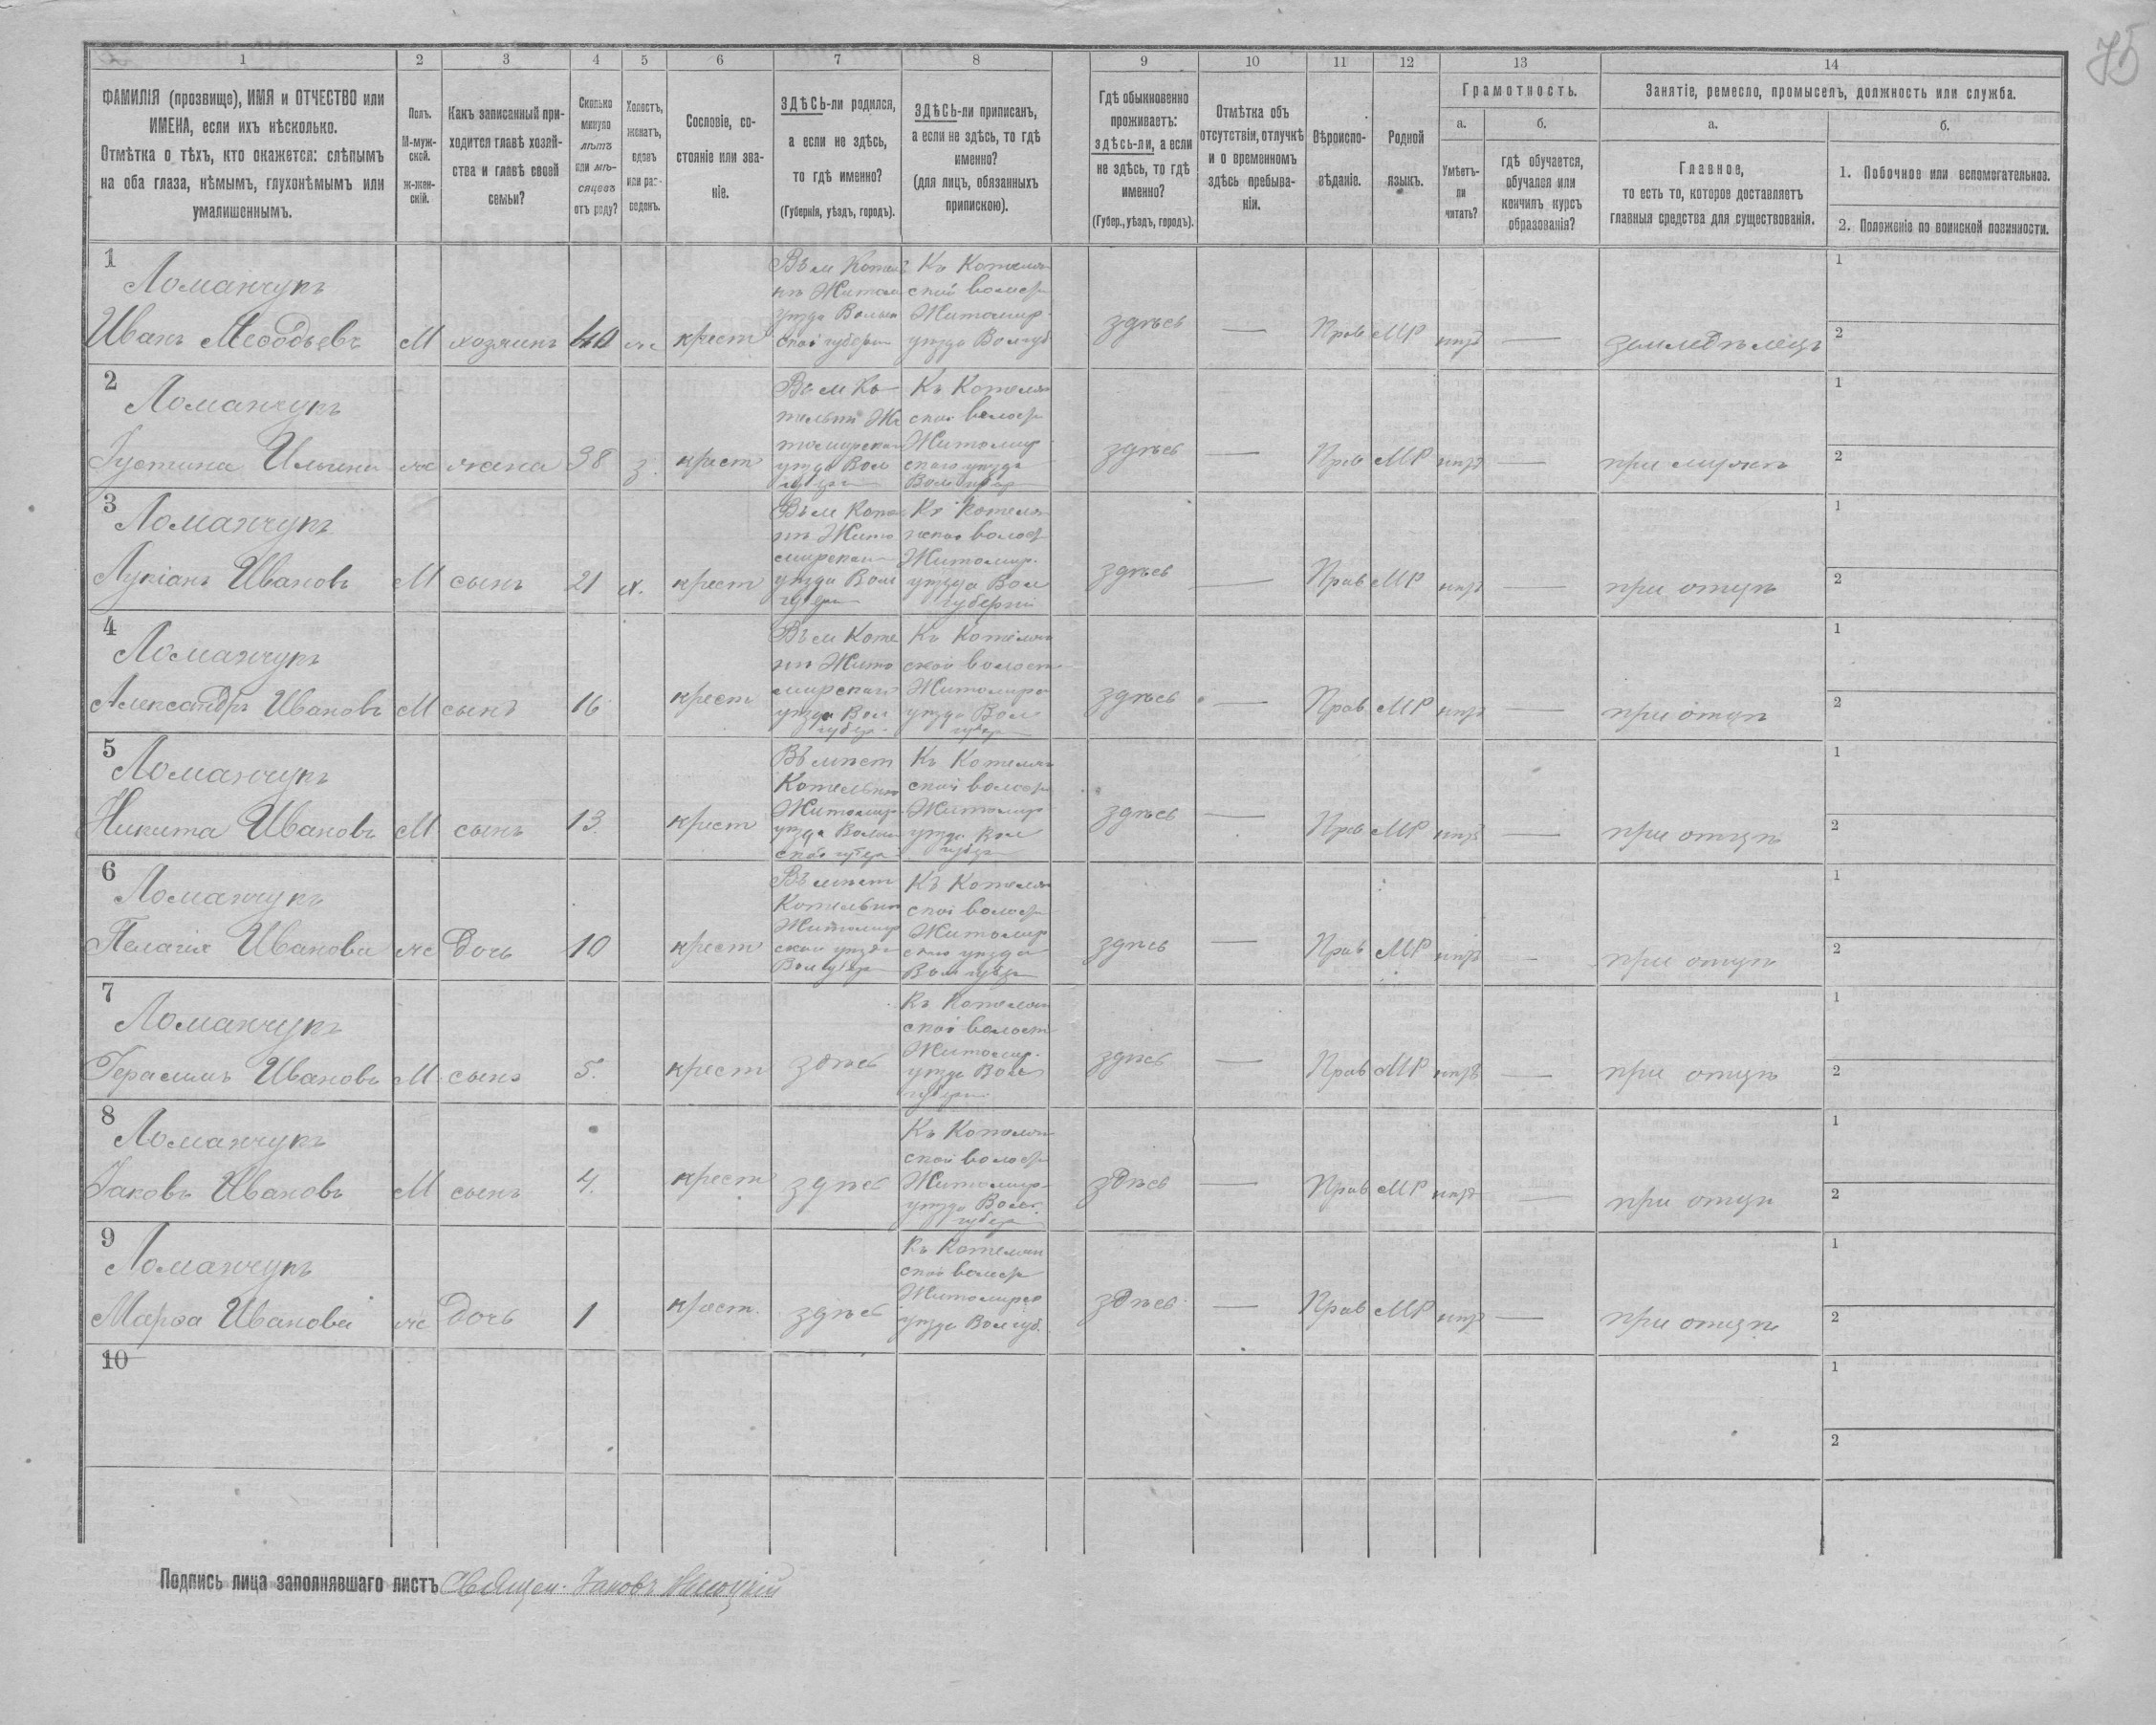 75
1 2 3 4 5 6 7 8 9 10 11 12 13 14
ФАМИЛІЯ (прозвище), ИМЯ и ОТЧЕСТВО или
ИМЕНА, если ихъ нѣсколько.
Отмѣтка о тѣхъ, кто окажется: слѣпымъ
на оба глаза, нѣмымъ, глухонѣмымъ или
умалишеннымъ.
Полъ.
М-муж-
ской.
Ж-жен-
скій.
Какъ записанный при-
ходится главѣ хозяй-
ства и главѣ своей
семьи?
Сколько
минуло
лѣтъ
или мѣ-
сяцевъ
отъ роду?
Холостъ,
женатъ,
вдовъ
или раз-
веденъ.
Сословіе, со-
стояніе или зва-
ніе.
ЗДѢСЬ-ли родился,
а если не здѣсь,
то гдѣ именно?
(Губернія, уѣздъ, городъ).
ЗДѢСЬ-ли приписанъ,
а если не здѣсь, то гдѣ
именно?
(для лицъ, обязанныхъ
припискою).
Гдѣ обыкновенно
проживаетъ:
здѣсь-ли, а если
не здѣсь, то гдѣ
именно?
(Губер., уѣздъ, городъ).
Отмѣтка объ
отсутствіи, отлучкѣ
и о временномъ
здѣсь пребыва-
ніи.
Вѣроиспо-
вѣданіе.
Родной
языкъ.
Грамотность.
а.
Умѣетъ-
ли
читать?
б.
гдѣ обучается,
обучался или
кончилъ курсъ
образованія?
Занятіе, ремесло, промыселъ, должность или служба.
а.
Главное,
то есть то, которое доставляетъ
главныя средства для существованія.
б.
1. Побочное или вспомогательное.
2. Положеніе по воинской повинности.
1
Ломанчукъ
Иванъ Меѳодьевъ М хозяинъ 40 ж крест
Въ м Котел
нѣ Житом
уѣзда Волын
ской губерни
Къ Котелян
ской волост
Житомир
уѣзда Вол губ
здѣсь — Прав МР нѣтъ — земледѣлецъ
1
2
2
Ломанчукъ
Іустина Ильина ж жена 38 з. крест
Въ м Ко
тельни Жи
томирскаго
уѣзда Вол
Къ Котелян
ской волост
Житомир
скаго уѣзда
Вол губер
здѣсь — Прав МР нѣтъ — при мужѣ
1
2
3
Ломанчукъ
Лукіанъ Ивановъ М сынъ 21 х. крест
Въ м Котел
нѣ Жито
мирскаго
уѣзда Вол
губерн
Къ Котелян
ской волост
Житомир.
уѣзда Вол
губерніи
здѣсь — Прав МР нѣтъ — при отцѣ
1
2
4
Ломанчукъ
Александръ Ивановъ М сынъ 16 крест
Въ м Коте
нѣ Жито
мирскаго
уѣзда Вол
губер
Къ Котелян
ской волост
Житомирс
уѣзда Вол
губер
здѣсь — Прав МР нѣтъ — при отцѣ
1
2
5
Ломанчукъ
Никита Ивановъ М сынъ 13. крест
Въ мѣст
Котельнѣ
Житомир
уѣзда Волын
ской губер
Къ Котелян
ской волост
Житомир
уѣзда Вол
губер
здѣсь — Прав МР нѣтъ — при отцѣ
1
2
6
Ломанчукъ
Пелагія Иванова ж дочь 10 крест
Въ мѣст
Котельнѣ
Житомир
скаго уѣзда
Вол губер
Къ Котелян
ской волост
Житомир
скаго уѣзда
Вол губер
здѣсь — Прав МР нѣтъ — при отцѣ
1
2
7
Ломанчукъ
Герасимъ Ивановъ М сынъ 5. крест здѣсь
Къ Котелян
ской волост
Житомир.
уѣзда Вол
губерн
здѣсь — Прав МР нѣтъ — при отцѣ
1
2
8
Ломанчукъ
Іаковъ Ивановъ М сынъ 4. крест здѣсь
Къ Котелян
ской волост
Житомир
уѣзда Вол.
губер
здѣсь — Прав МР нѣтъ — при отцѣ
1
2
9
Ломанчукъ
Марѳа Иванова ж дочь 1 крест. здѣсь
Къ Котелян
ской волост
Житомирс
уѣзда Вол губ.
здѣсь — Прав МР нѣтъ — при отцѣ
1
2
10
1
2
Подпись лица заполнявшаго листъ Священ. Іаковъ